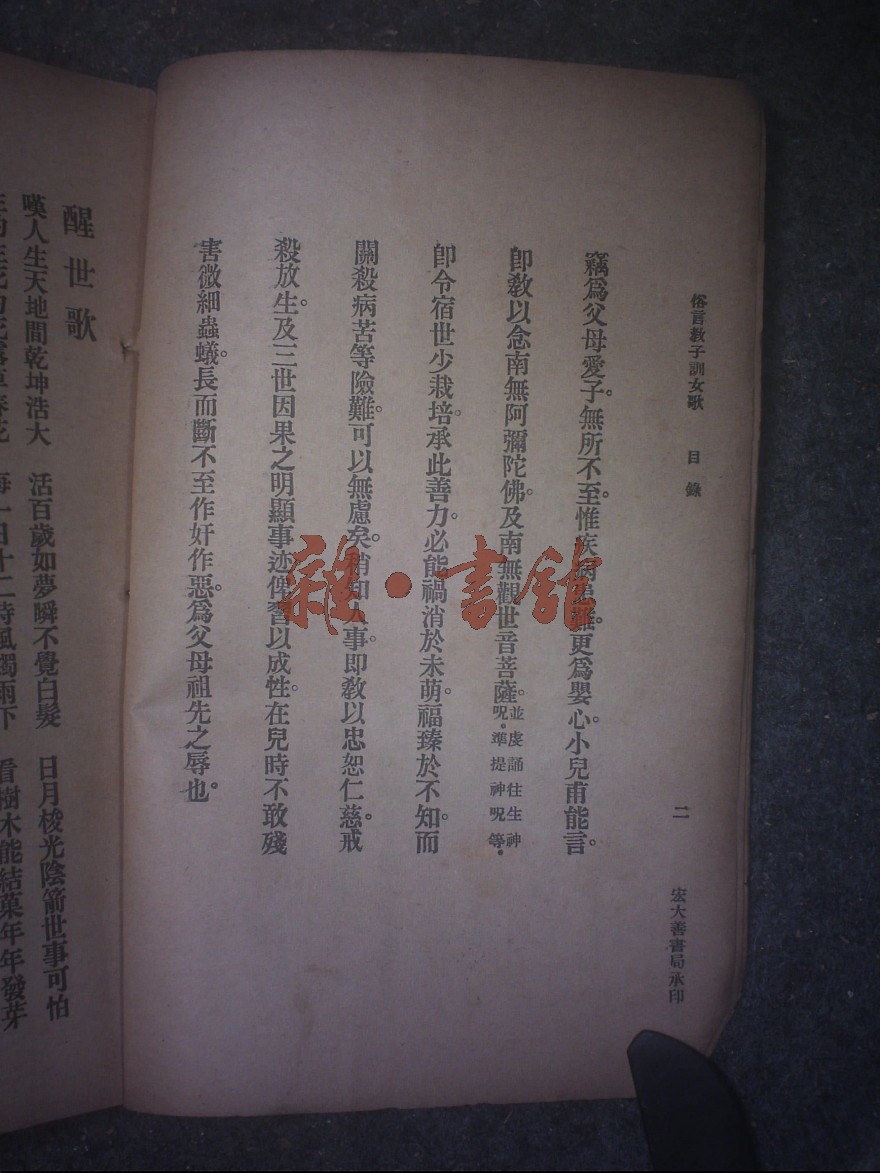 俗言敎子訓女歌 目錄 二 宏大善書局承印
竊爲父母愛子。無所不至。惟疾病患難。更爲嬰心。小兒甫能言。
卽敎以念南無阿彌陀佛。及南無觀世音菩薩。並虔誦往生神呪。準提神呪等。
卽令宿世少栽培。承此善力。必能禍消於未萌。福臻於不知。而
關殺病苦等險難。可以無慮矣。稍知人事。卽敎以忠恕仁慈。戒
殺放生。及三世因果之明顯事迹。俾習以成性。在兒時不敢殘
害微細蟲蟻。長而斷不至作奸作惡。爲父母祖先之辱也。
醒世歌
嘆人生天地間乾坤浩大 活百歲如夢瞬不覺白髮 日月梭光陰箭世事可怕
每一日十二時風燭雨下 看樹木能結菓年年發芽
雜·書館